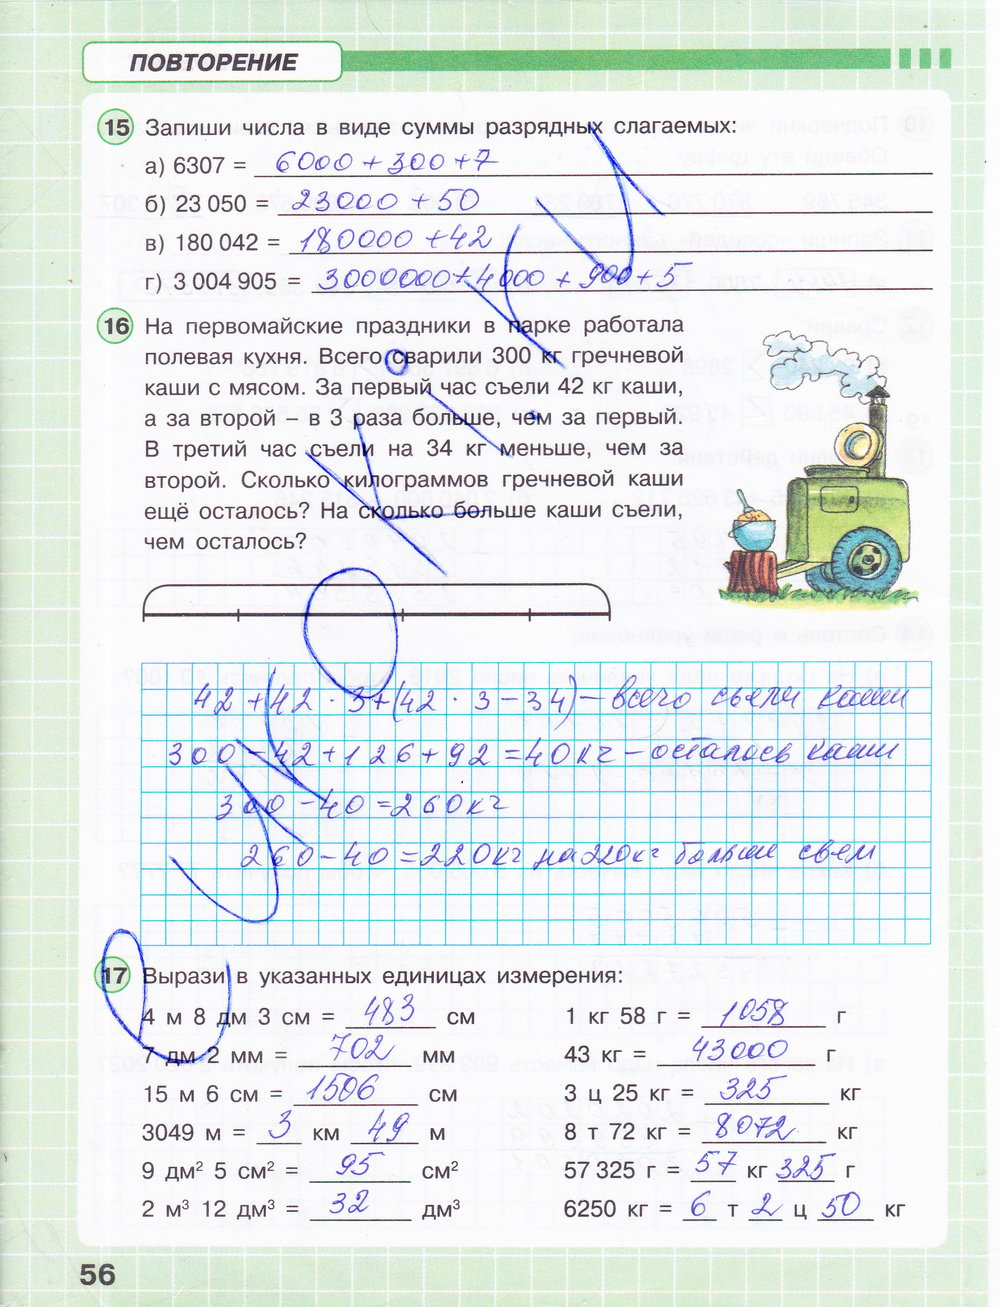 ПОВТОРЕНИЕ
15 Запиши числа в виде суммы разрядных слагаемых:
а) 6307 = 6000 + 300 + 7
б) 23 050 = 23000 + 50
в) 180 042 = 180000 + 42
г) 3 004 905 = 3000000 + 4000 + 900 + 5
16 На первомайские праздники в парке работала
полевая кухня. Всего сварили 300 кг гречневой
каши с мясом. За первый час съели 42 кг каши,
а за второй – в 3 раза больше, чем за первый.
В третий час съели на 34 кг меньше, чем за
второй. Сколько килограммов гречневой каши
ещё осталось? На сколько больше каши съели,
чем осталось?
42 + (42 · 3 + (42 · 3 – 34) – всего съели каши
300 – 42 + 126 + 92 = 40 кг – осталось каши
300 – 40 = 260 кг
260 – 40 = 220 кг на 220 кг больше
17 Вырази в указанных единицах измерения:
4 м 8 дм 3 см = 483 см
1 кг 58 г = 1058 г
7 дм 2 мм = 702 мм
43 кг = 43000 г
15 м 6 см = 1506 см
3 ц 25 кг = 325 кг
3049 м = 3 км 49 м
8 т 72 кг = 8072 кг
9 дм² 5 см² = 95 см²
57 325 г = 57 кг 325 г
2 м³ 12 дм³ = 32 дм³
6250 кг = 6 т 2 ц 50 кг
56